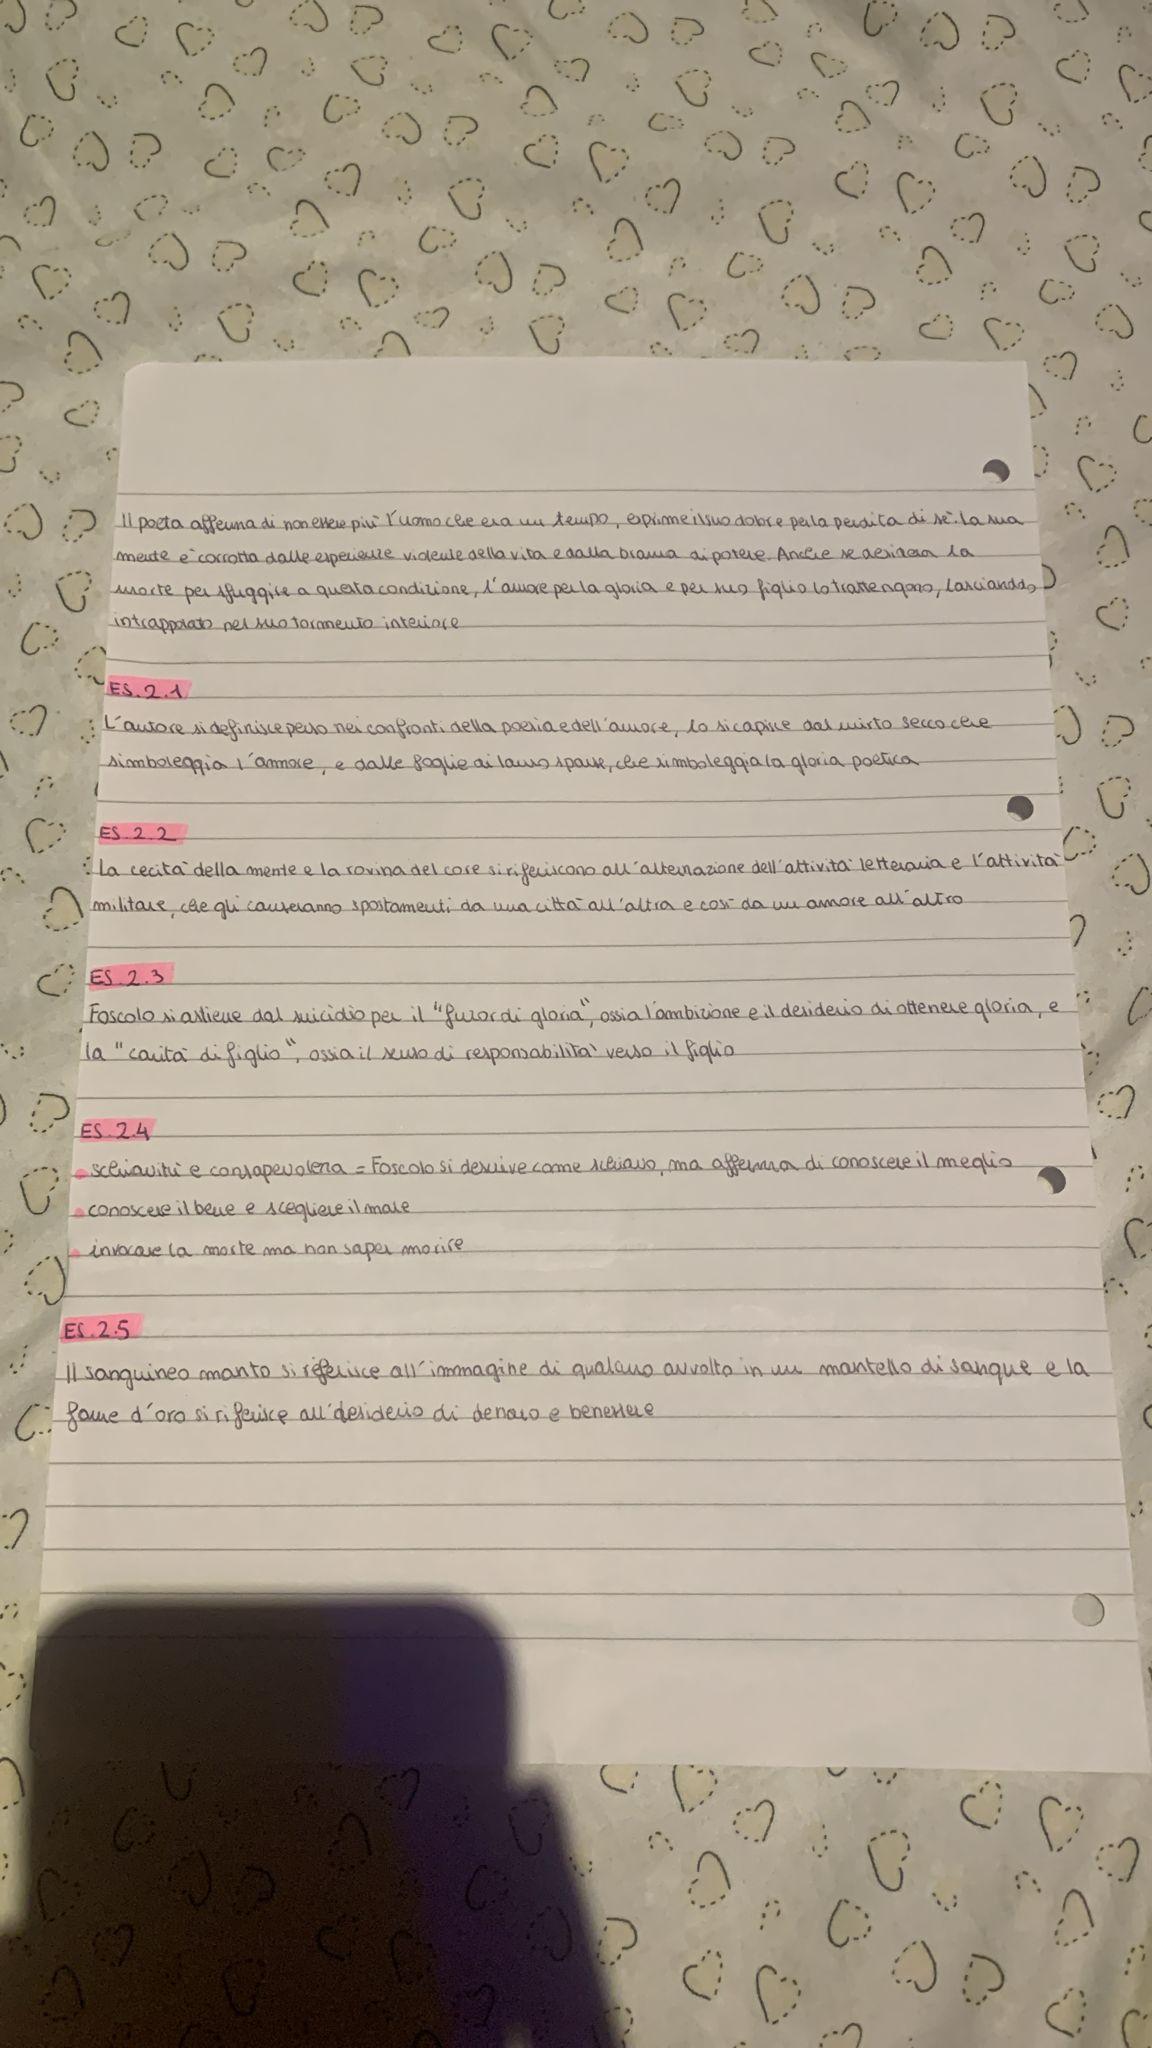 Il poeta afferma di non essere più l'uomo che era un tempo, esprime il suo dolore per la perdita di sè. La sua
mente è corrotta dalle esperienze violente della vita e dalla brama di potere. Anche se desidera la
morte per sfuggire a questa condizione, l'amore per la gloria e per suo figlio lo trattengono, lasciandolo
intrappolato nel suo tormento interiore
ES. 2.1
L'autore si definisce perso nei confronti della poesia e dell'amore, lo si capisce dal mirto secco che
simboleggia l'ammore, e dalle foglie di lauro sparse, che simboleggia la gloria poetica
ES. 2.2
La cecità della mente e la rovina del core si riferiscono all'alternazione dell'attività letteraria e l'attività
militare, che gli causeranno spostamenti da una città all'altra e così da un amore all'altro
ES. 2.3
Foscolo si astiene dal suicidio per il "furor di gloria", ossia l'ambizione e il desiderio di ottenere gloria, e
la "carità di figlio", ossia il senso di responsabilità verso il figlio
ES. 2.4
• schiavitù e consapevolezza = Foscolo si descrive come schiavo, ma afferma di conoscere il meglio
• conoscere il bene e scegliere il male
• invocare la morte ma non saper morire
ES. 2.5
Il sanguineo manto si riferisce all'immagine di qualcuno avvolto in un mantello di sangue e la
fame d'oro si riferisce all'desiderio di denaro e benessere